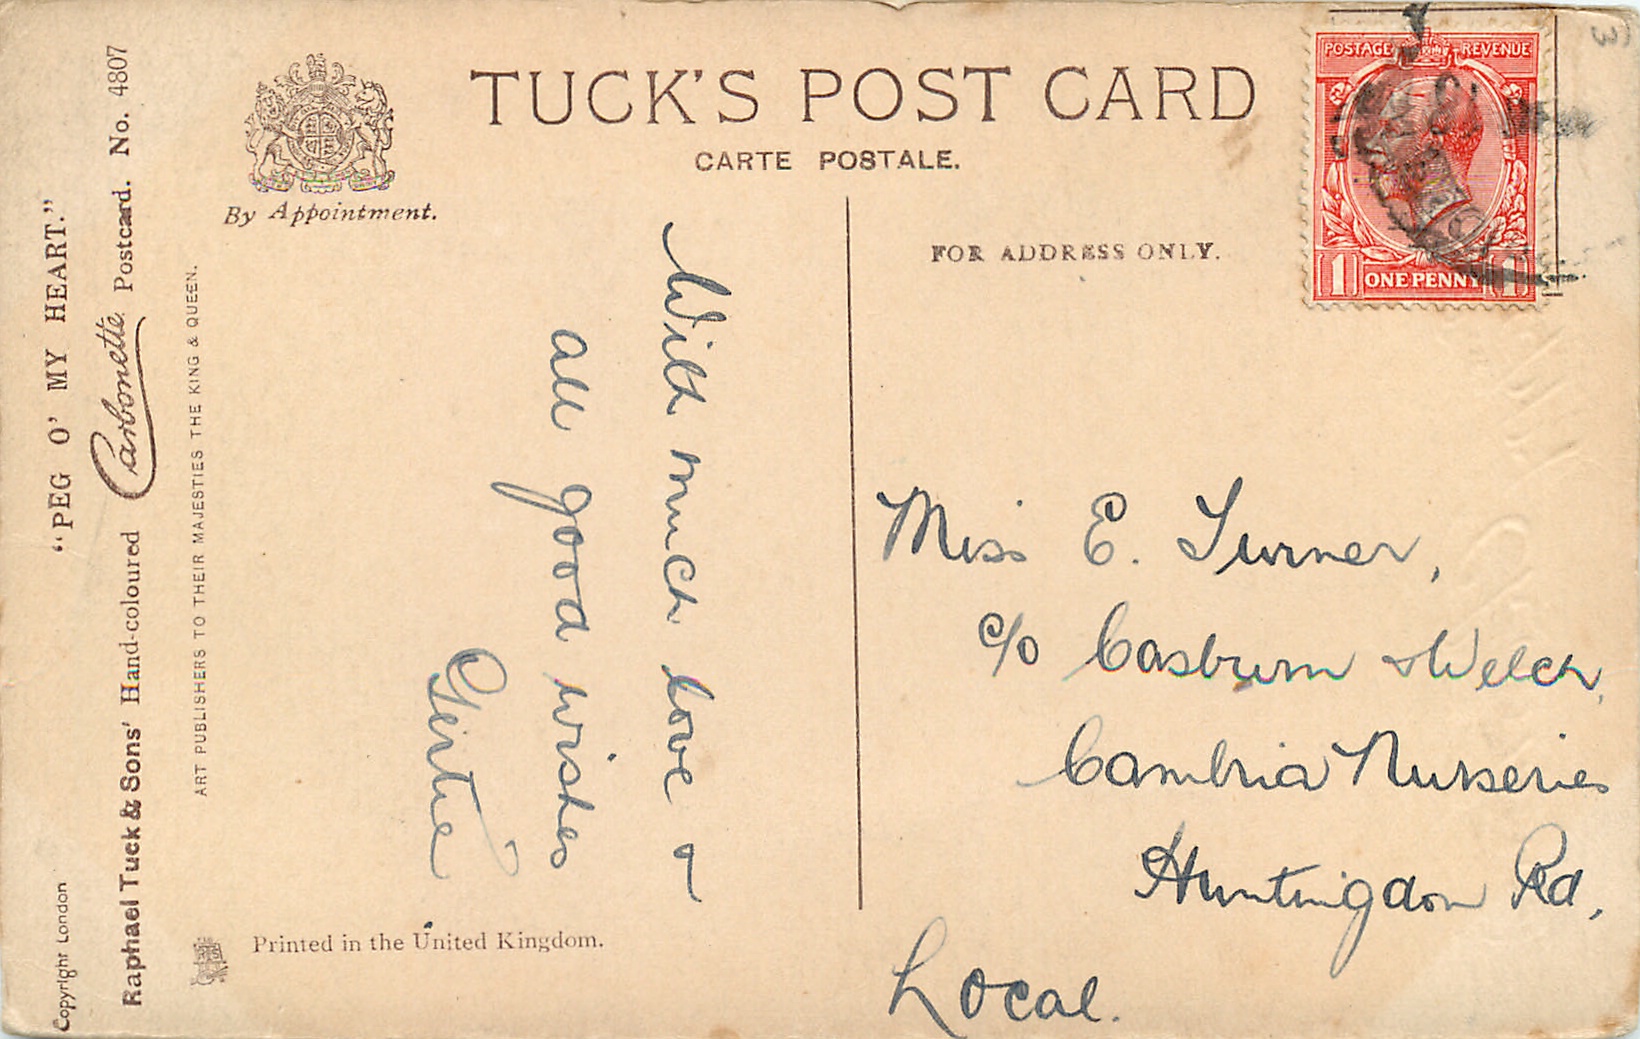 TUCK'S POST CARD
CARTE POSTALE.
By Appointment.
FOR ADDRESS ONLY.
POSTAGE REVENUE
1 ONE PENNY 1
"PEG O' MY HEART."
Raphael Tuck & Sons' Hand-coloured Carbonette Postcard. No. 4807
ART PUBLISHERS TO THEIR MAJESTIES THE KING & QUEEN.
Copyright London
With much love &
all good wishes
Gertie
Miss E. Turner,
c/o Casburn & Welch,
Cambria Nurseries
Huntingdon Rd,
Local.
Printed in the United Kingdom.
3